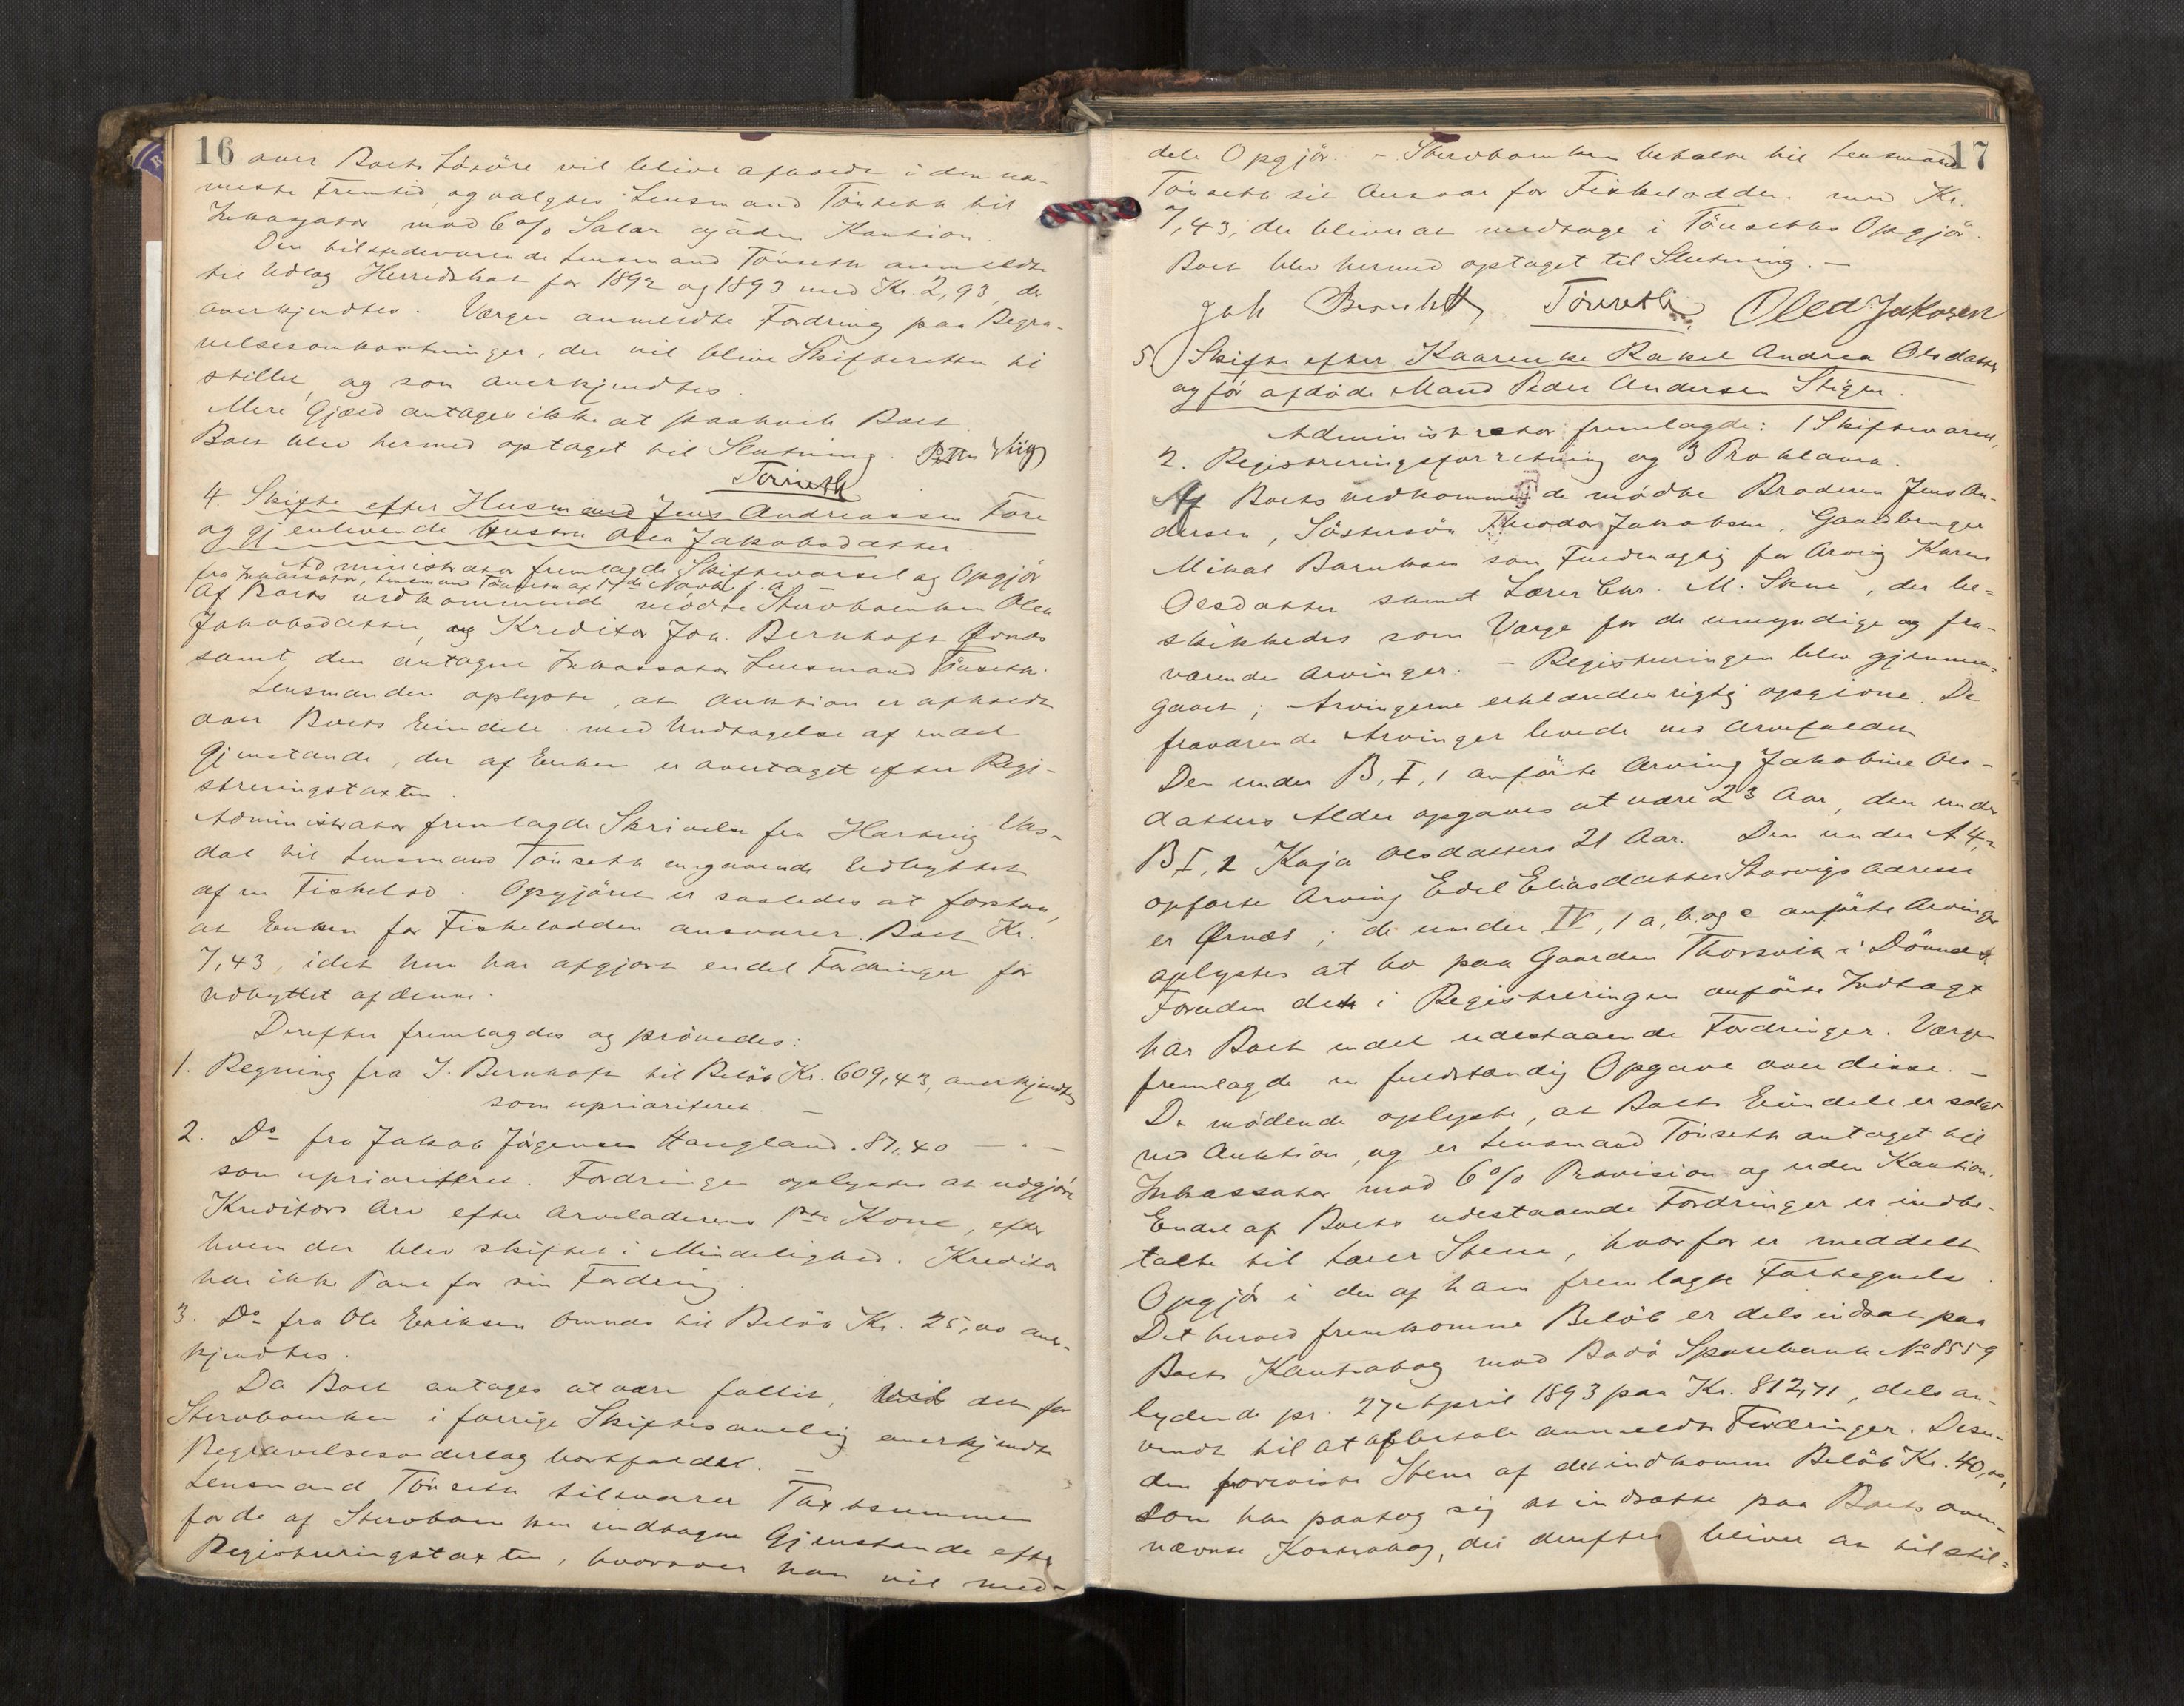 16
over Boets Løsøre vil blive afholdt i den næ-
meste Fremtid, og valgtes Lensmand Tönseth til
Inkassator mod 6% Salær og uden Kaution.
Den tilstedeværende Lensmand Tönseth anmeldte
til Udlæg Herredskat for 1892 og 1893 med Kr. 2,93, der
anerkjendtes. Værgen anmeldte Fordring paa Begra-
velsesomkostninger, der vil blive Skifteretten til-
stillet, og som anerkjendtes.
Mere Gjæld antages ikke at paahvile Boet.
Boet blev hermed optaget til Slutning.
Tönseth
4. Skifte efter Husmand Jens Andreassen Fore
og gjenlevende Hustru Olea Jakobsdatter.
Administrator fremlagde Skiftevarsel og Opgjör
fra Inkassator, Lensmand Tönseth af 17de Novbr f. A.
Af Boets vedkommende mödte Stervboenken Olea
Jakobsdatter, og Kreditor Joh. Bernhoft Ørnæs
samt den antagne Inkassator Lensmand Tönseth.
Lensmanden oplyste, at Auktion er afholdt
over Boets Eiendele med Undtagelse af endel
Gjenstande, der af Enken er overtaget efter Regi-
streringstaxten.
Administrator fremlagde Skrivelse fra Hartvig Vas-
dal til Lensmand Tönseth angaaende Udbyttet
af en Fiskelod. Opgjöret er saaledes at forstaa,
at Enken for Fiskelodden ansvarer Boet Kr.
7,43, idet hun har afgjort endel Fordringer for
Udbyttet af denne.
Derefter fremlagdes og prövedes:
1. Regning fra J. Bernhoft til Belöb Kr. 609,43, anerkjendtes
som uprioriteret. —
2. Do fra Jakob Jörgensen Haugland . 87,40 — " —
som uprioriteret. Fordringen oplystes at udgjöre
Kreditors Arv efter Arveladerens 1ste Kone, efter
hvem der blev skiftet i Mindelighed. Kreditor
har ikke Pant for sin Fordring.
3. Do fra Ole Eriksen Ørnæs til Belöb Kr. 25,00 aner-
kjendtes.
Da Boet antages at være fallit, vil det for
Stervboenken i forrige Skiftesamling anerkjendte
Begravelsesvederlag bortfaldet. —
Lensmand Tönseth tilsvarer Taxtsummen
for de af Stervboenken undtagne Gjenstande efter
Registreringstaxten, hvorover han vil med-
17
dele Opgjör. – Stervboenken betalte til Lensmand
Tönseth sit Ansvar for Fiskelodden med Kr.
7,43, der bliver at medtage i Tönseths Opgjör.
Boet blev hermed optaget til Slutning. —
Joh Bernhoft Tönseth Olea Jakosen
5. Skifte efter Kaarenke Rakel Andrea Olsdatter
og för afdöde Mand Peder Andersen Stigen.
Administrator fremlagde: 1 Skiftevarsel,
2. Registreringsforretning og 3 Proklama.
Af Boets vedkommende mödte Broderen Jens An-
dersen, Söstersön Theodor Jakobsen, Gaardbruger
Mikal Baruksen som Fuldmægtig for Arving Karen
Olsdatter samt Lærer Chr. M. Stene, der be-
skikkedes som Værge for de umyndige og fra-
værende Arvinger. – Registreringen blev gjennem-
gaaet; Arvingerne erklæredes rigtig opgivne. De
fraværende Arvinger levede ved Arvefaldet.
Den under B, I, 1 anförte Arving Jakobine Ols-
datters Alder opgaves at være 23 Aar, den under
B I, 2 Kaja Olsdatters 21 Aar. Den under A 4, 2
opförte Arving Edel Eliasdatter Storvigs Adresse
er Ørnæs; de under IV, 1 a, b og c anförte Arvinger
oplystes at bo paa Gaarden Thorsvik i Dönnes.
Foruden det i Registreringen anförte Indtægt
har Boet endel udestaaende Fordringer. Værgen
fremlagde en fuldstændig Opgave over disse. —
De mödende oplyste, at Boets Eiendele er solgt
ved Auktion, og er Lensmand Tönseth antaget til
Inkassator mod 6% Provision og uden Kaution.
Endel af Boets udestaaende Fordringer er indbe-
talte til Lærer Stene, hvorfor er meddelt
Opgjör i den af ham fremlagte Fortegnelse.
Det herved fremkomne Belöb er dels indsat paa
Boets Kontrabog med Bodö Sparebank No 8559
lydende pr. 27 April 1893 paa Kr. 812,71, dels an-
vendt til at afbetale anmeldte Fordringer. Desu-
den foreviste Stene af det indkomne Belöb Kr. 40,00,
som han paatog sig at indsætte paa Boets oven-
nævnte Kontrabog, der derefter bliver at tilstil-